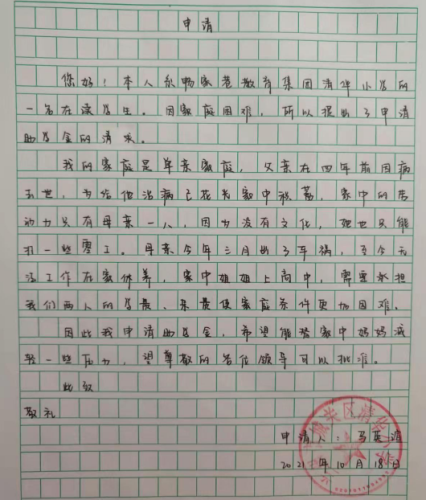 申请
您好！本人系畅家巷教育集团清华小学的
一名在读学生。因家庭困难，所以提出了申请
助学金的请求。
我的家庭是单亲家庭，父亲在四年前因病
去世，为给他治病已花光家中积蓄，家中的劳
动力只有母亲一人，因为没有文化，她也只能
打一些零工。母亲今年三月出了车祸，至今无
法工作在家休养，家中姐姐上高中，需要承担
我们两人的学费、杂费使家庭条件更加困难。
因此我申请助学金，希望能给家中妈妈减
轻一些压力，望尊敬的各位领导可以批准。
此致
敬礼
申请人：马
2021年10月18日